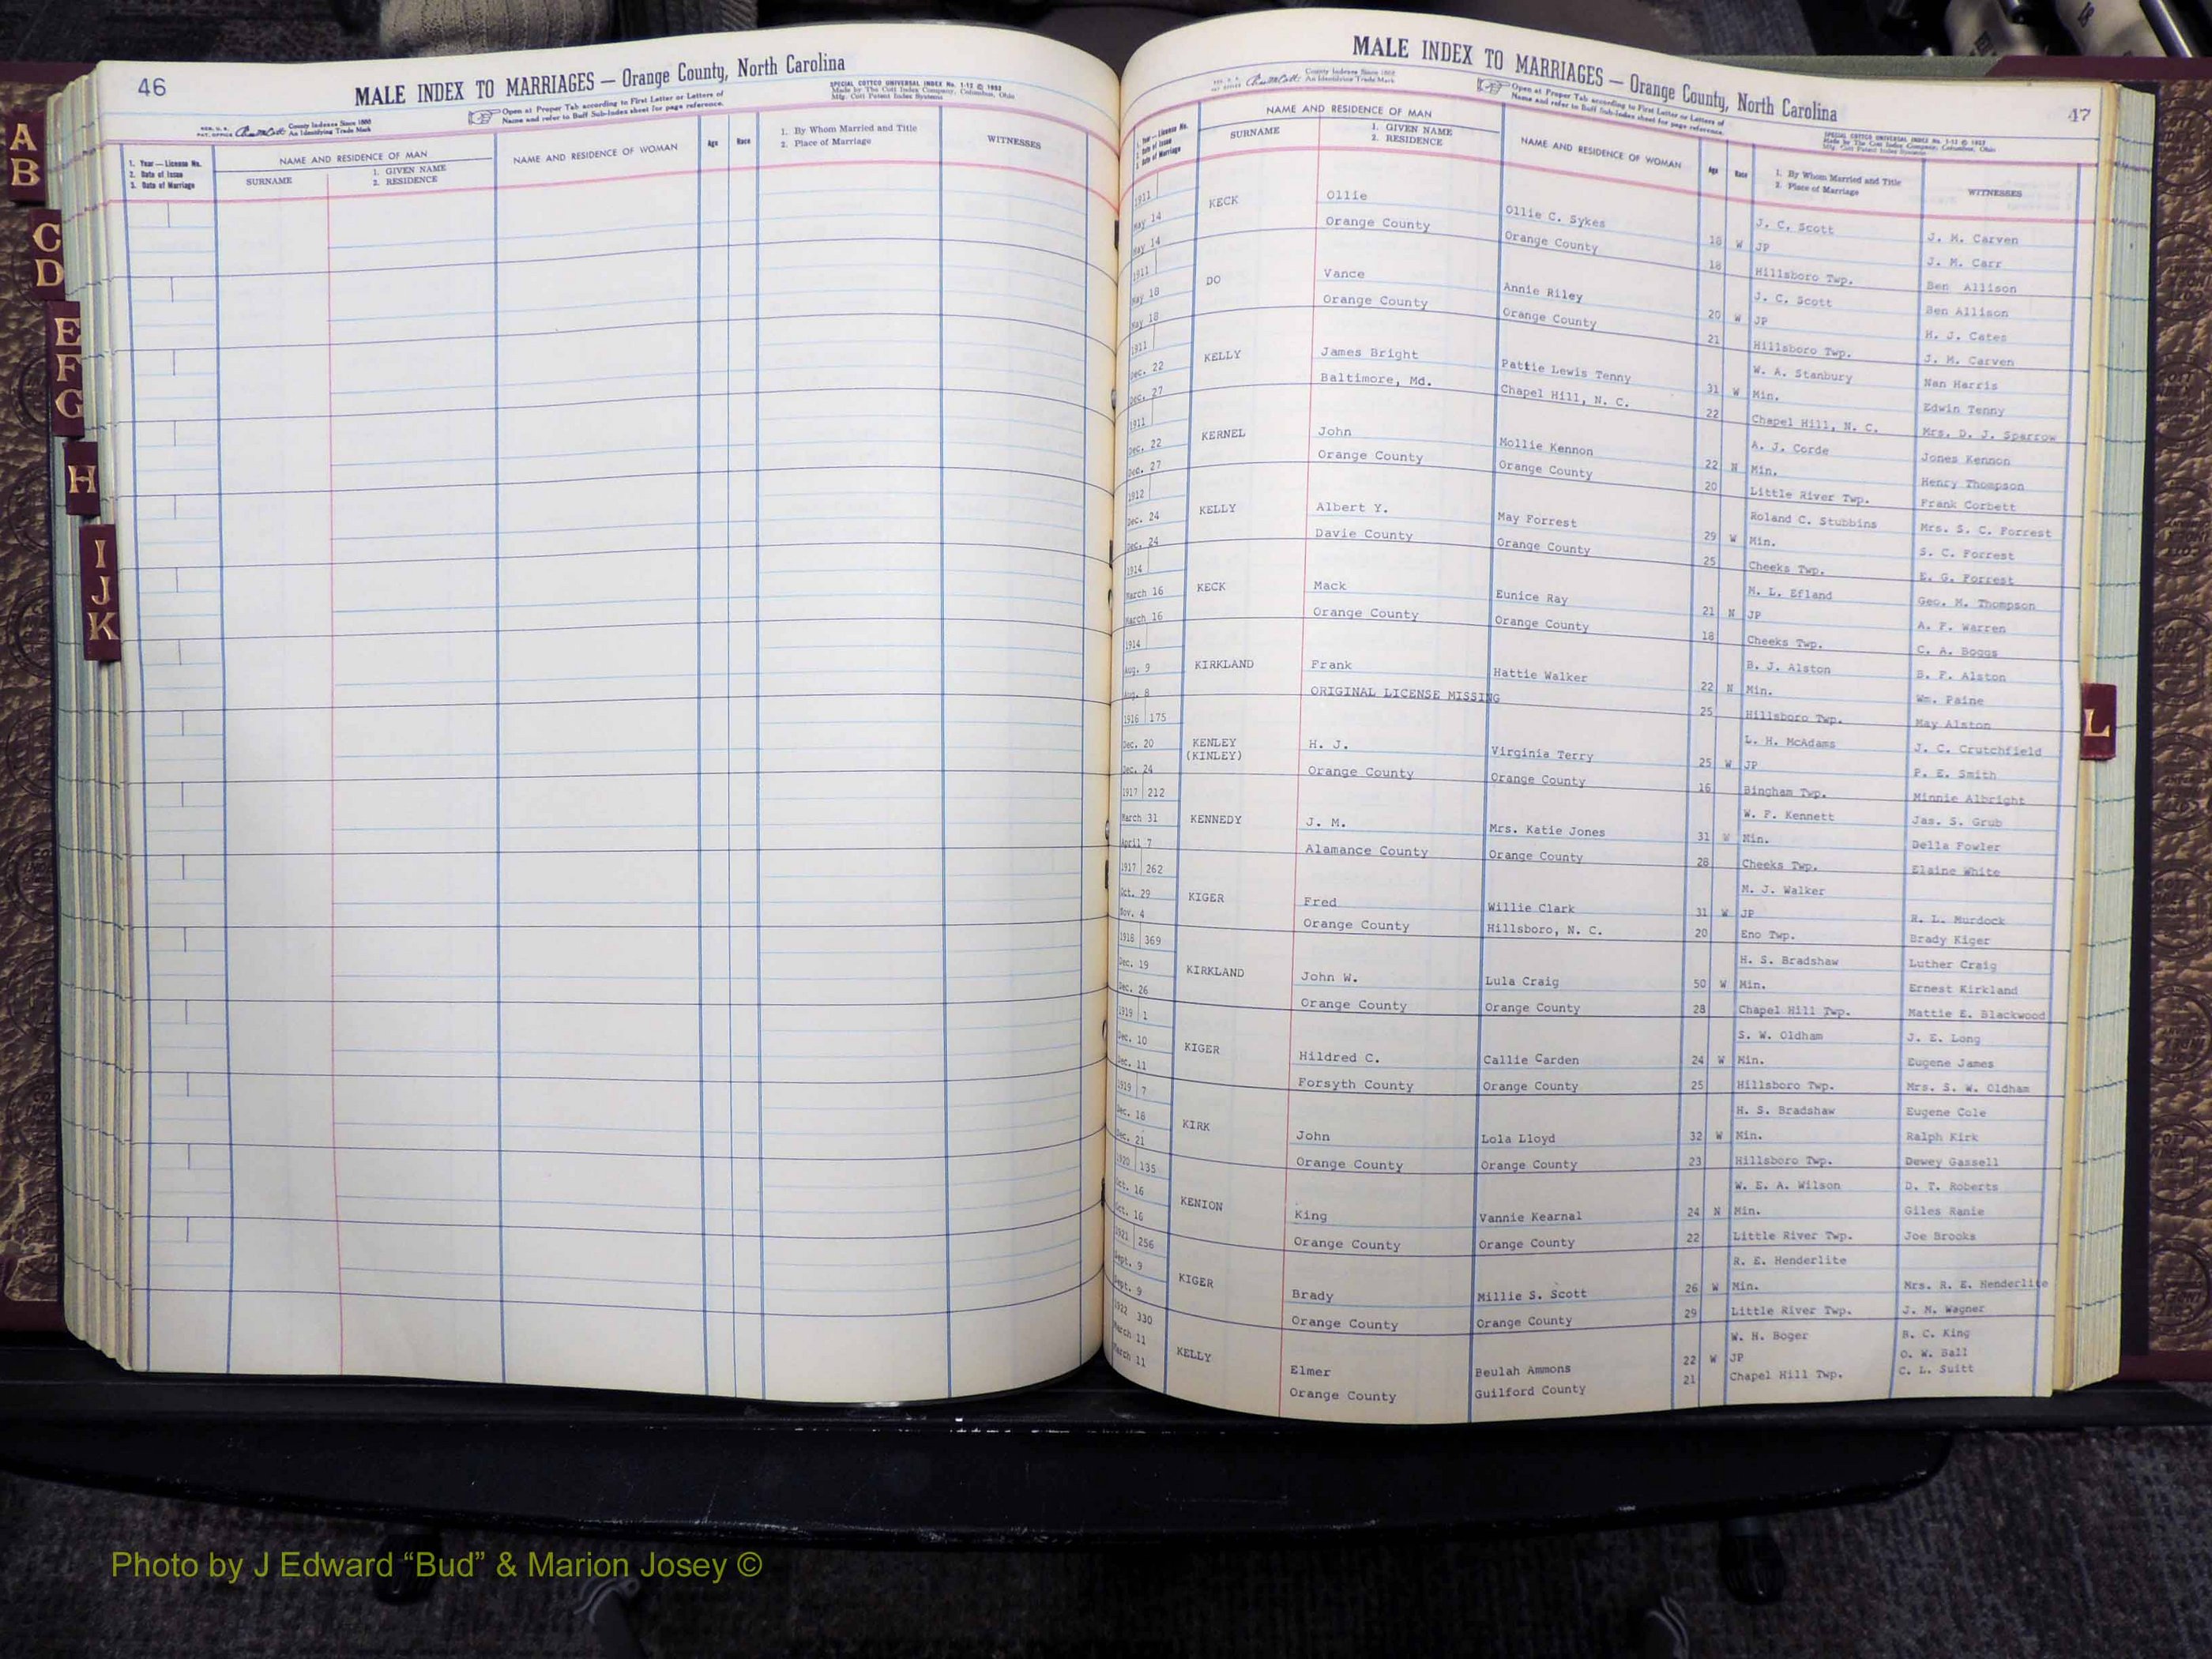 46
MALE INDEX TO MARRIAGES — Orange County, North Carolina
Open at Proper Tab according to First Letter or Letters of
Name and refer to Buff Sub-Index sheet for page reference.
SPECIAL COTTCO UNIVERSAL INDEX No. 1-12 © 1952
Made by The Cott Index Company, Columbus, Ohio
Mfg. Cott Patent Index Systems
County Indexes Since 1888
An Identifying Trade Mark
1. Year — License No.
2. Date of Issue
3. Date of Marriage
NAME AND RESIDENCE OF MAN
SURNAME
1. GIVEN NAME
2. RESIDENCE
NAME AND RESIDENCE OF WOMAN
Age
Race
1. By Whom Married and Title
2. Place of Marriage
WITNESSES
A
B
C
D
E
F
G
H
I
J
K
MALE INDEX TO MARRIAGES — Orange County, North Carolina
47
County Indexes Since 1888
An Identifying Trade Mark
Open at Proper Tab according to First Letter or Letters of
Name and refer to Buff Sub-Index sheet for page reference.
SPECIAL COTTCO UNIVERSAL INDEX No. 1-12 © 1952
Made by The Cott Index Company, Columbus, Ohio
Mfg. Cott Patent Index Systems
Year — License No.
Date of Issue
Date of Marriage
NAME AND RESIDENCE OF MAN
SURNAME
1. GIVEN NAME
2. RESIDENCE
NAME AND RESIDENCE OF WOMAN
Age
Race
1. By Whom Married and Title
2. Place of Marriage
WITNESSES
1911 KECK Ollie Ollie C. Sykes 18 W J. C. Scott J. M. Carven
May 14 Orange County Orange County 18 JP J. M. Carr
May 14 Hillsboro Twp. Ben Allison
1911 DO Vance Annie Riley 20 W J. C. Scott Ben Allison
May 18 Orange County Orange County 21 JP H. J. Cates
May 18 Hillsboro Twp. J. M. Carven
1911 KELLY James Bright Pattie Lewis Tenny 31 W W. A. Stanbury Nan Harris
Dec. 22 Baltimore, Md. Chapel Hill, N. C. 22 Min. Edwin Tenny
Dec. 27 Chapel Hill, N. C. Mrs. D. J. Sparrow
1911 KERNEL John Mollie Kennon 22 N A. J. Corde Jones Kennon
Dec. 22 Orange County Orange County 20 Min. Henry Thompson
Dec. 27 Little River Twp. Frank Corbett
1912 KELLY Albert Y. May Forrest 29 W Roland C. Stubbins Mrs. S. C. Forrest
Dec. 24 Davie County Orange County 25 Min. S. C. Forrest
Dec. 24 Cheeks Twp. E. G. Forrest
1914 KECK Mack Eunice Ray 21 N M. L. Efland Geo. M. Thompson
March 16 Orange County Orange County 18 JP A. F. Warren
March 16 Cheeks Twp. C. A. Boggs
1914 KIRKLAND Frank Hattie Walker 22 N B. J. Alston B. F. Alston
Aug. 9 ORIGINAL LICENSE MISSING 25 Min. Wm. Paine
Aug. 8 Hillsboro Twp. May Alston
1916 175 KENLEY H. J. Virginia Terry 25 W L. H. McAdams J. C. Crutchfield
Dec. 20 (KINLEY) Orange County Orange County 16 JP P. E. Smith
Dec. 24 Bingham Twp. Minnie Albright
1917 212 KENNEDY J. M. Mrs. Katie Jones 31 W W. F. Kennett Jas. S. Grub
March 31 Alamance County Orange County 28 Min. Della Fowler
April 7 Cheeks Twp. Elaine White
1917 262 KIGER Fred Willie Clark 31 W M. J. Walker
Oct. 29 Orange County Hillsboro, N. C. 20 JP R. L. Murdock
Nov. 4 Eno Twp. Brady Kiger
1918 369 KIRKLAND John W. Lula Craig 50 W H. S. Bradshaw Luther Craig
Dec. 19 Orange County Orange County 28 Min. Ernest Kirkland
Dec. 26 Chapel Hill Twp. Mattie E. Blackwood
1919 1 KIGER Hildred C. Callie Carden 24 W S. W. Oldham J. E. Long
Dec. 10 Forsyth County Orange County 25 Min. Eugene James
Dec. 11 Hillsboro Twp. Mrs. S. W. Oldham
1919 7 KIRK John Lola Lloyd 32 W H. S. Bradshaw Eugene Cole
Dec. 18 Orange County Orange County 23 Min. Ralph Kirk
Dec. 21 Hillsboro Twp. Dewey Gassell
1920 135 KENION King Vannie Kearnal 24 N W. E. A. Wilson D. T. Roberts
Oct. 16 Orange County Orange County 22 Min. Giles Ranie
Oct. 16 Little River Twp. Joe Brooks
1921 256 KIGER Brady Millie S. Scott 26 W R. E. Henderlite
Sept. 9 Orange County Orange County 29 Min. Mrs. R. E. Henderlite
Sept. 9 Little River Twp. J. M. Wagner
1922 330 KELLY Elmer Beulah Ammons 22 W W. H. Boger B. C. King
March 11 Orange County Guilford County 21 JP O. W. Ball
March 11 Chapel Hill Twp. C. L. Suitt
L
Photo by J Edward “Bud” & Marion Josey ©